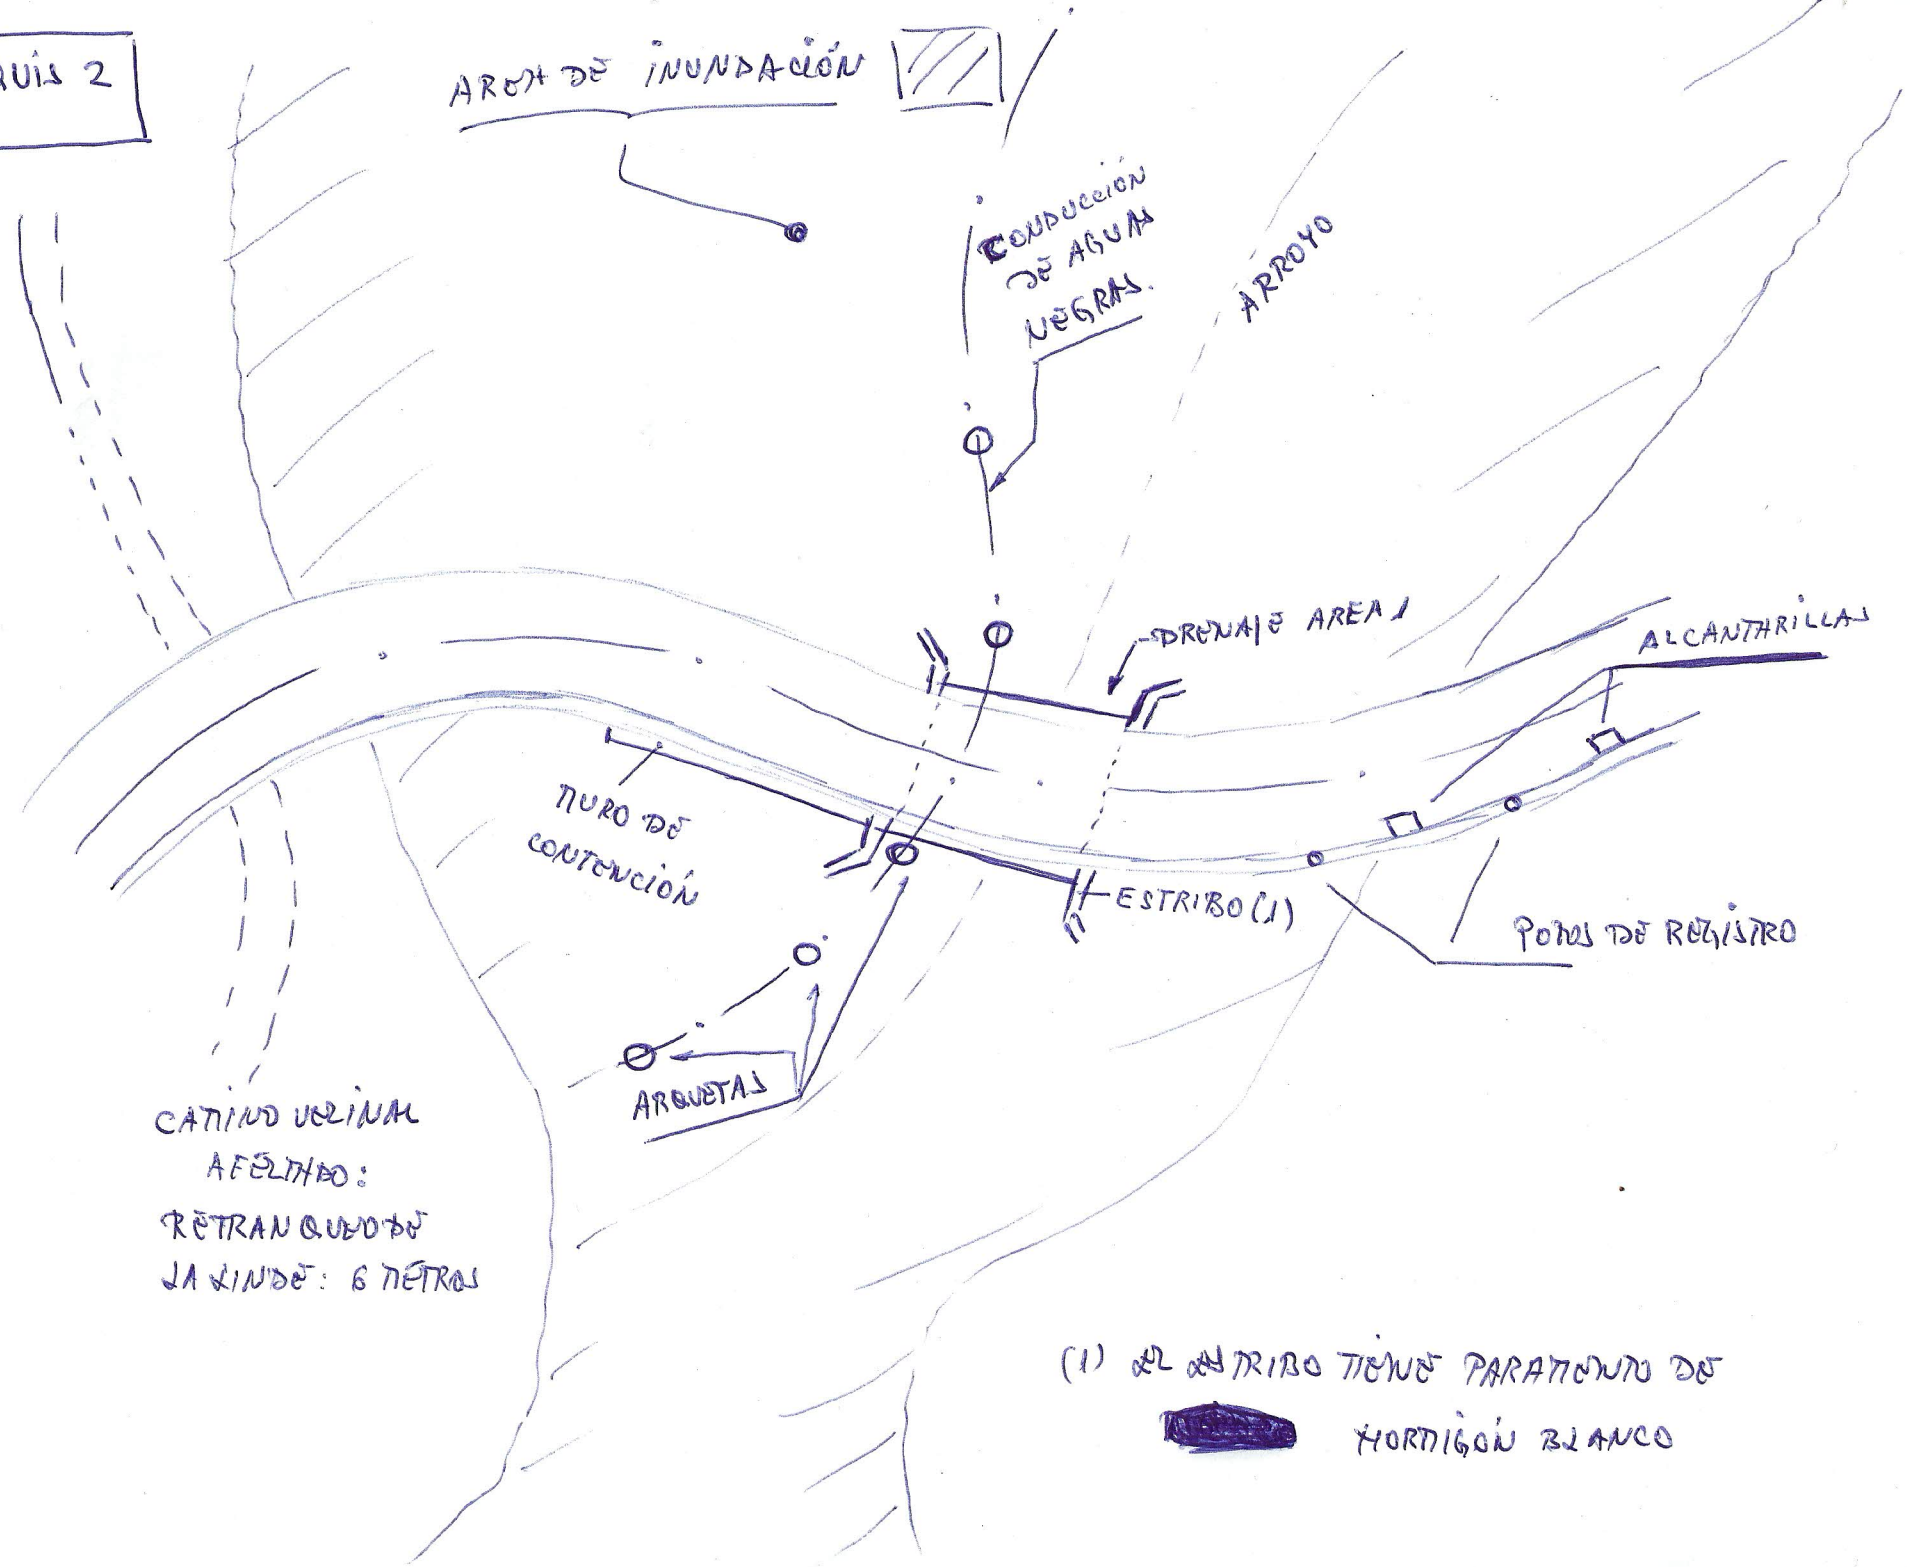 QUIS 2
AREA DE INUNDACIÓN
CONDUCCIÓN
DE AGUAS
NEGRAS.
ARROYO
DRENAJE AREA 1
ALCANTARILLAS
MURO DE
CONTENCIÓN
ESTRIBO (1)
POZOS DE REGISTRO
ARQUETAS
CAMINO VECINAL
AFECTADO:
RETRANQUEO DE
LA LINDE: 6 METROS
(1) EL ESTRIBO TIENE PARAMENTO DE
HORMIGÓN BLANCO